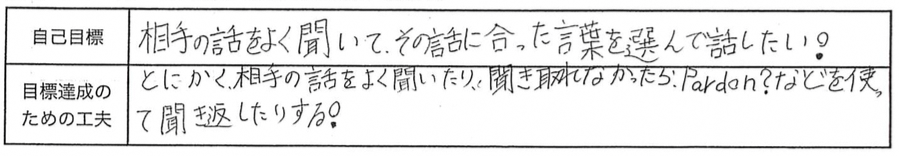 自己目標
相手の話をよく聞いて、その話に合った言葉を選んで話したい!
目標達成の
ための工夫
とにかく、相手の話をよく聞いたり、聞き取れなかったら、Pardon?などを使っ
て聞き返したりする!